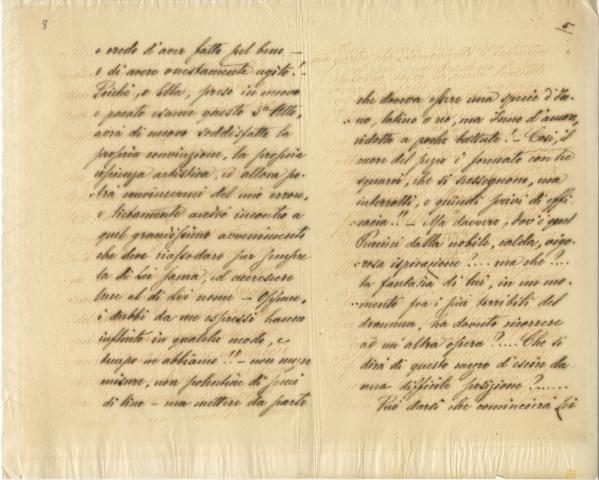 8
e credo d'aver fatto pel bene —
e di avere onestamente agito! —
Poichè, o Ella, preso in nuovo
e pacato esame questo 3º Atto,
avrà di nuovo soddisfatta la
propria convinzione, la propria
coscienza artistica, ed allora po-
trà convincermi del mio errore,
e lietamente andrò incontro a
quel grandissimo avvenimento
che deve riaffodare per sempre
la di Lei fama, ed accrescere
luce al di Lei nome — Oppure,
i dubbi da me espressi hanno
influito in qualche modo, e
tempo ne abbiamo!! — non
misure, non
di lino — ma mettere da parte
5
che doveva essere una specie d'In-
no, latino o no, ma Inno d'amore,
ridotto a poche battute! — Così, il
cuore del pezzo è formato con tre
squarci, che si susseguono, ma
interrotti, e quindi privi di effi-
cacia!! — Ma davvero, dov'è quel
Puccini dalla nobile, calda, vigo-
rosa ispirazione?.... ma che?....
la fantasia di lui, in un mo-
mento fra i più terribili del
dramma, ha dovuto ricorrere
ad un'altra opera?.... Che si
dirà di questo mezzo d'escire da
una difficile posizione?......
Può darsi che comincierà Lei